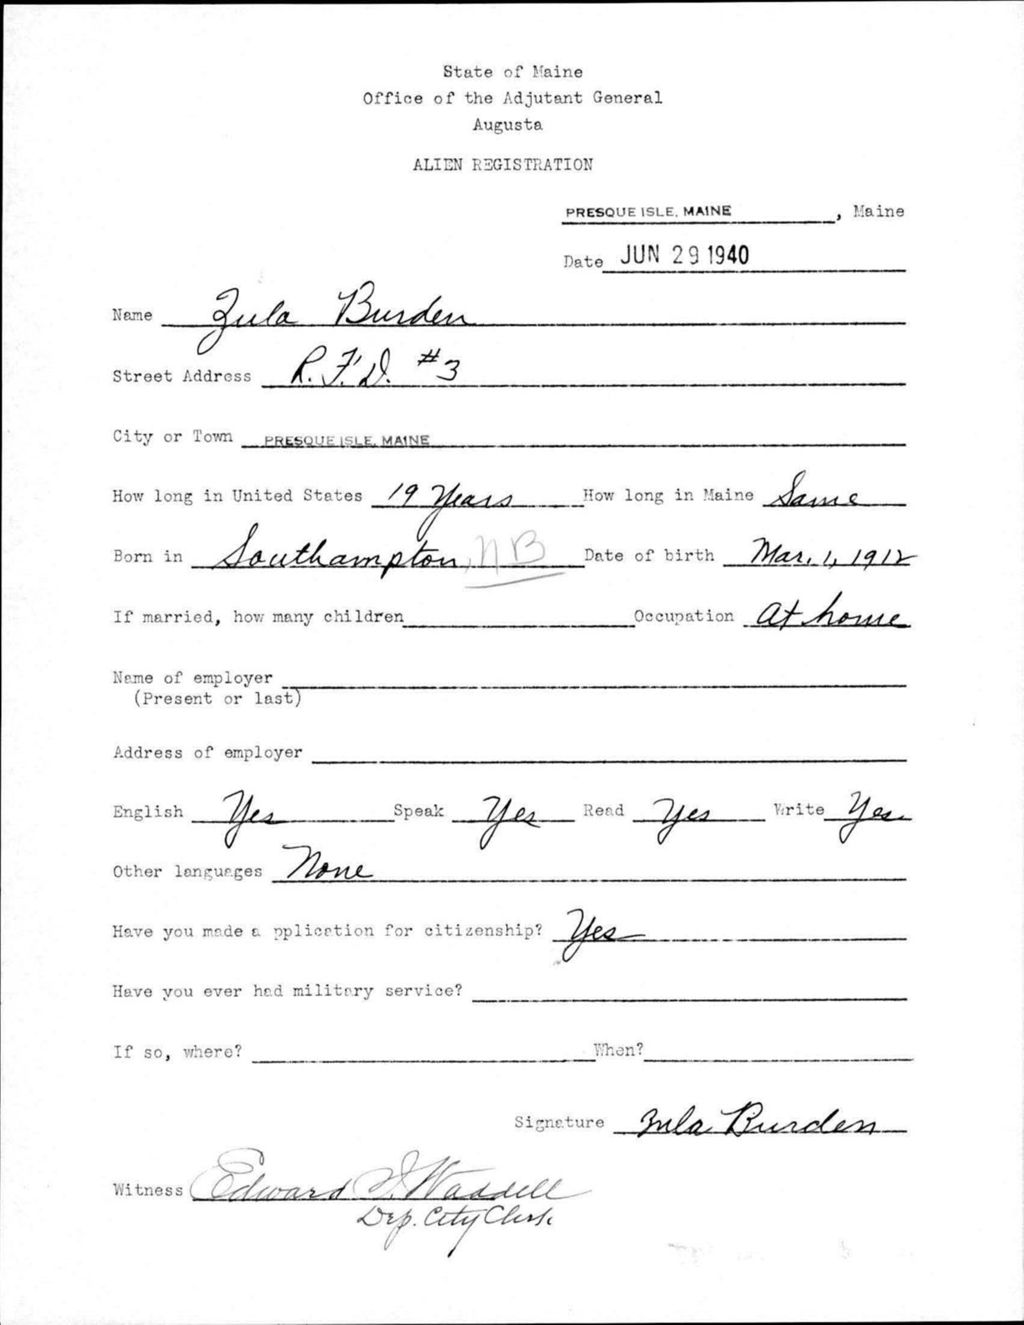 State of Maine
Office of the Adjutant General
Augusta
ALIEN REGISTRATION
PRESQUE ISLE, MAINE, Maine
Date JUN 29 1940
Name Zula Burden
Street Address R.F.D. #3
City or Town PRESQUE ISLE, MAINE
How long in United States 19 Years How long in Maine Same
Born in Southampton, NB Date of birth Mar. 1, 1912
If married, how many children Occupation At home
Name of employer
(Present or last)
Address of employer
English Yes Speak Yes Read Yes Write Yes.
Other languages None
Have you made a pplication for citizenship? Yes
Have you ever had military service?
If so, where? When?
Signature Zula Burden
Witness Edward I. Waddell
Dep. City Clerk